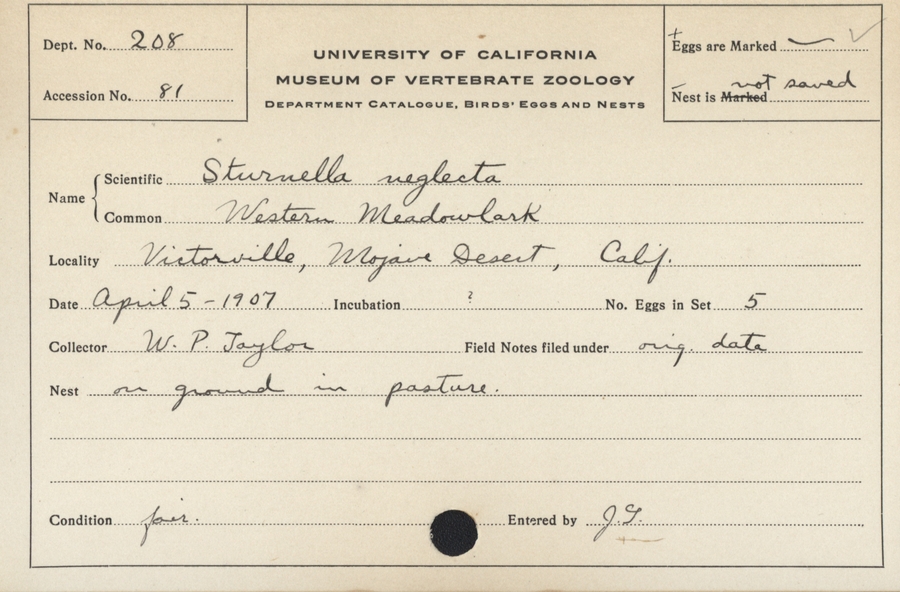 Dept. No. 208
Accession No. 81
UNIVERSITY OF CALIFORNIA
MUSEUM OF VERTEBRATE ZOOLOGY
DEPARTMENT CATALOGUE, BIRDS' EGGS AND NESTS
+ Eggs are Marked — ✓
not saved
– Nest is Marked
Name
Scientific Sturnella neglecta
Common Western Meadowlark
Locality Victorville, Mojave Desert, Calif.
Date April 5 - 1907 Incubation ? No. Eggs in Set 5
Collector W. P. Taylor Field Notes filed under orig. data
Nest on ground in pasture.
Condition fair. Entered by J.G.